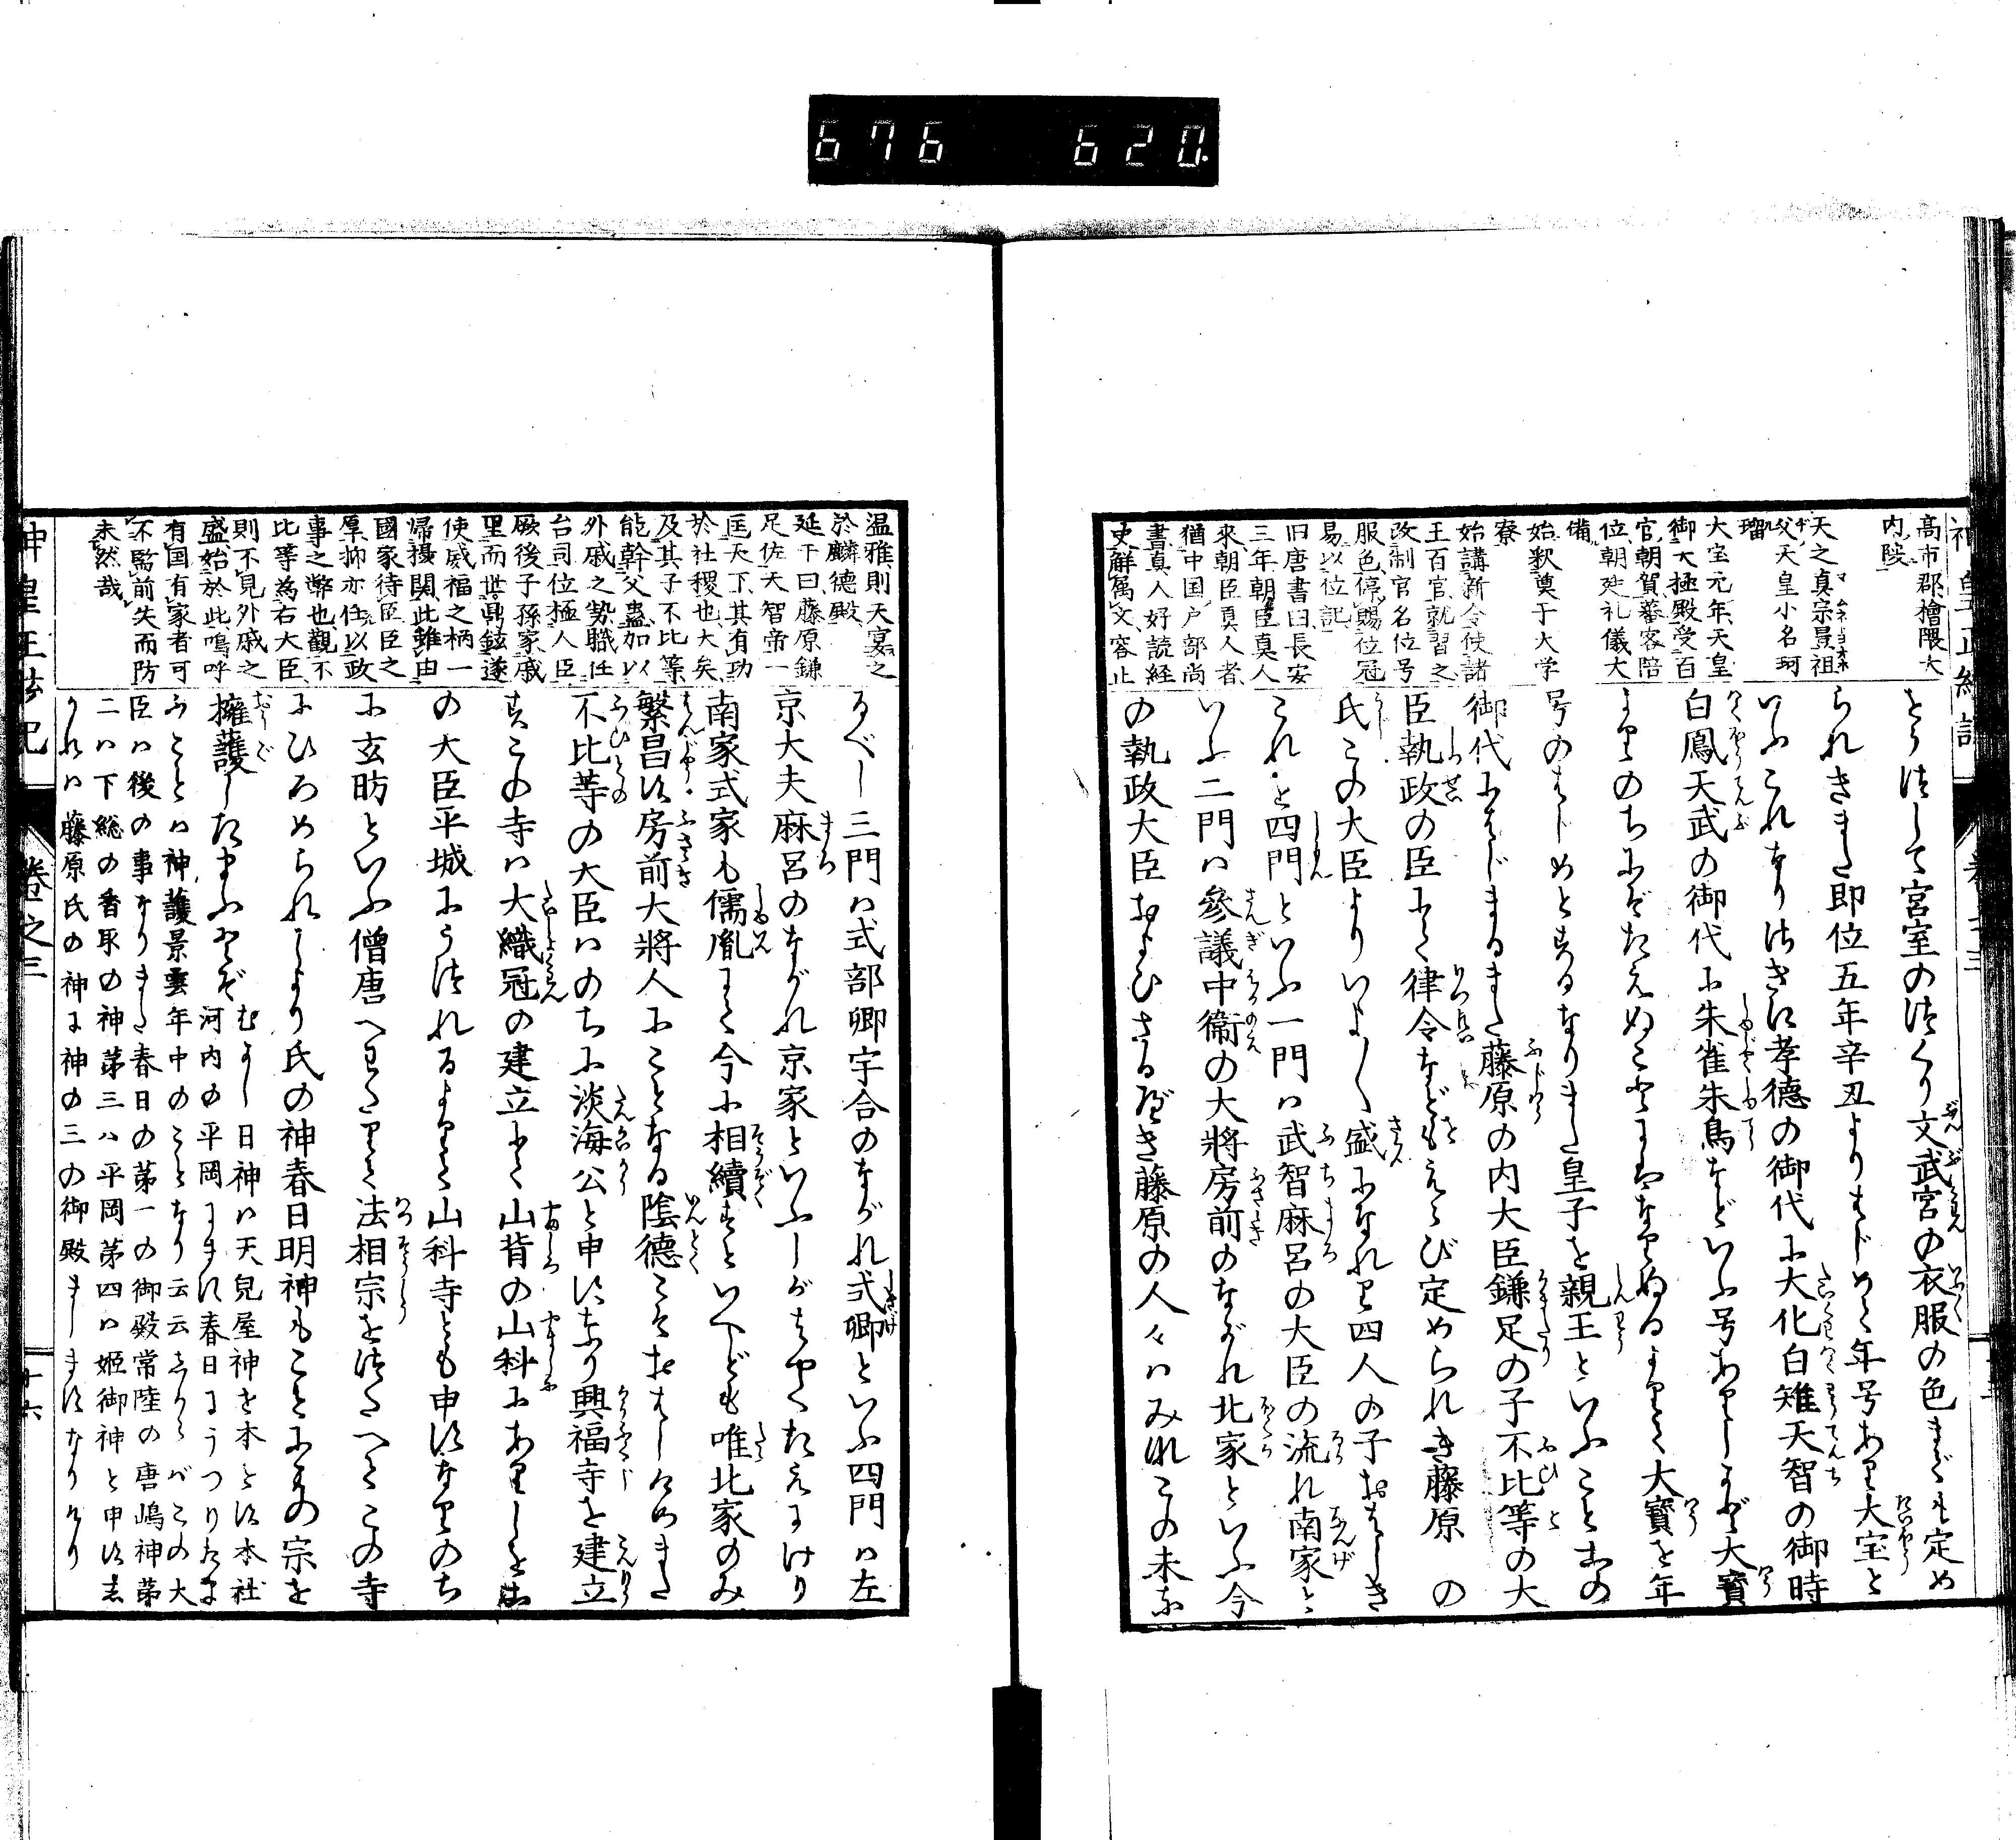 676 620
高市郡檜隈大
内陵
天之真宗豊祖
父天皇小名珂
瑠
大宝元年天皇
御大極殿受百
官朝賀蕃客陪
位朝廷礼儀大
備
始釈奠于大学
寮
始講新令使諸
王百官就習之
改制官名位号
服色停賜位冠
易以位記
旧唐書曰長安
三年朝臣真人
來朝臣真人者
猶中国戸部尚
書真人好読経
史解属文容止
をうつして宮室のつくり文武官の衣服の色までも定め
られきまた即位五年辛丑よりはじめて年号あり大宝と
いふこれよりさきに孝徳の御代に大化白雉天智の御時
白鳳天武の御代に朱雀朱鳥などいふ号ありしかど大寶
よりのちにぞたえぬことにはなりぬるよりて大寶を年
号のはじめとするなりまた皇子を親王といふことこの
御代にはじまるまた藤原の内大臣鎌足の子不比等の大
臣執政の臣にて律令などをもえらび定められき藤原の
氏この大臣よりいよ〱盛になれり四人の子おはしき
これを四門といふ一門は武智麻呂の大臣の流れ南家と
いふ二門は參議中衞の大將房前のながれ北家といふ今
の執政大臣およびさるべき藤原の人々はみなこの末な
温雅則天宴之
於麟德殿
延于曰藤原鎌
足佐天智帝一
匡天下其有功
於社稷也大矣
及其子不比等
能幹父蠱加以
外戚之勢職任
台司位極人臣
厥後子孫家戚
里而世鼎鉉遂
使威福之柄一
帰摂関此雖由
國家待臣臣之
厚抑亦任以政
事之弊也觀不
比等為右大臣
則不見外戚之
盛始於此嗚呼
有国有家者可
不監前失而防
未然哉
るべし三門は式部卿宇合のながれ式卿といふ四門は左
京大夫麻呂のながれ京家といふしがはやくたえにけり
南家式家も儒胤にて今に相續すといへども唯北家のみ
繁昌す房前大將人にことなる陰德こそおはしけめまた
不比等の大臣はのちに淡海公と申すなり興福寺を建立
すこの寺は大織冠の建立にて山背の山科にありしをこ
の大臣平城にうつれるよりて山科寺とも申すなりのち
に玄昉といふ僧唐へわたりて法相宗をつたへてこの寺
にひろめられしより氏の神春日明神もことにこの宗を
擁護したまふとぞ
むかし日神は天兒屋神を本とす本社
河内の平岡にます春日にうつりたま
ふことは神護景雲年中のことなり云云しからばこの大
臣は後の事なりまた春日の第一の御殿常陸の唐嶋神第
二は下総の香取の神第三は平岡第四は姫御神と申すし
かれは藤原氏の神は神の三の御殿ましますなりけり
神皇正統記 卷之三 十六